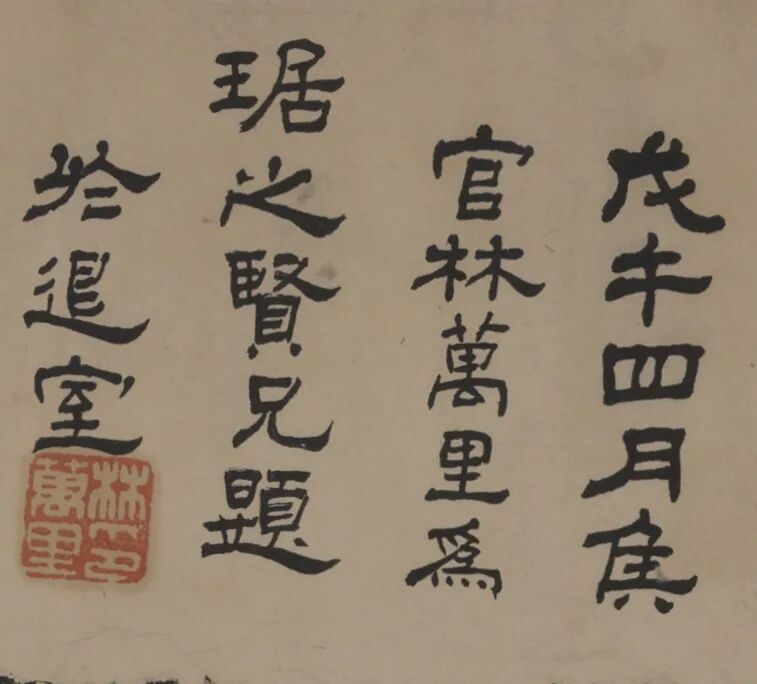 戊午四月侯
官林萬里爲
琚之賢兄題
於退室
林印
萬里